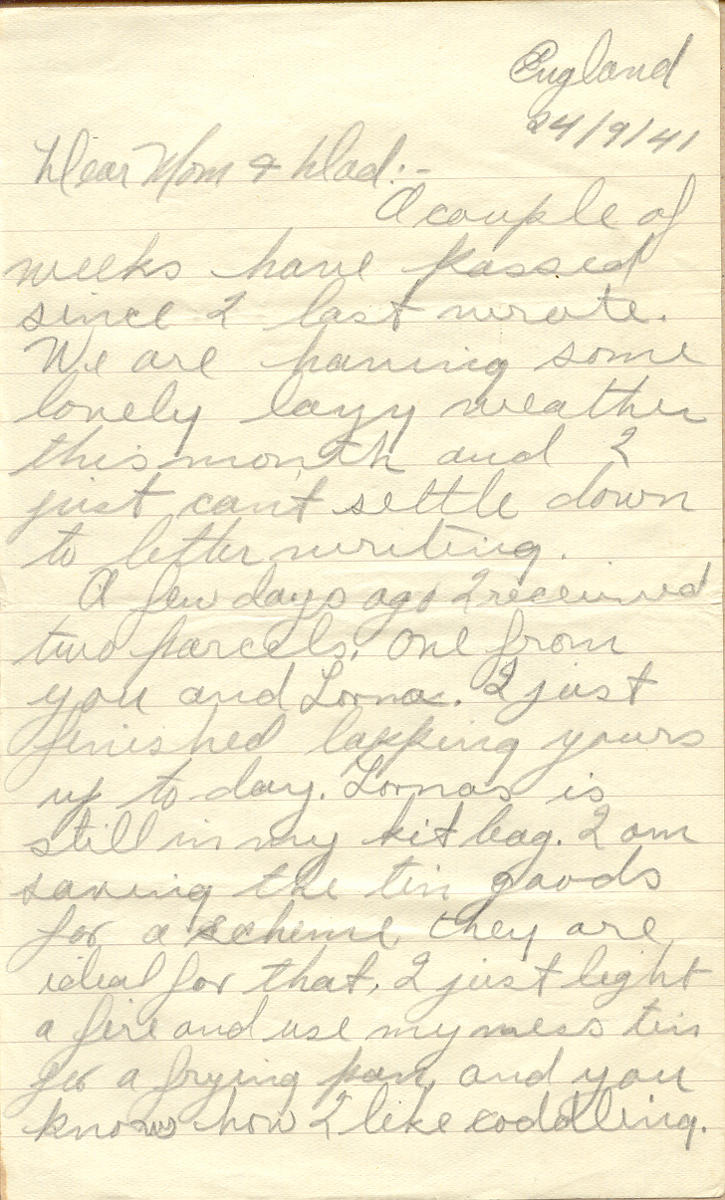 England
24/9/41
Dear Mom & Dad:-
A couple of
weeks have passed
since I last wrote.
We are having some
lovely lazy weather
this month and I
just cant settle down
to letter writing.
A few days ago I received
two parcels, one from
you and Lorna. I just
finished lapping yours
up to-day. Lornas is
still in my kit bag. I am
saving the tin goods
for a scheme, they are
ideal for that, I just light
a fire and use my mess tin
for a frying pan, and you
know how I like coddling.